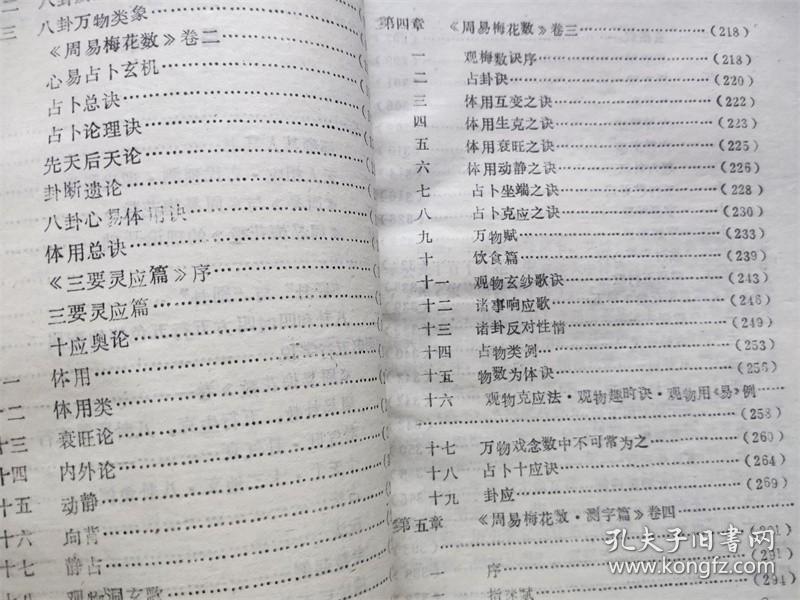 二 八卦
三 八卦万物类象
《周易梅花数》卷二
心易占卜玄机
占卜总诀
占卜论理诀
先天后天论
卦断遗论
八卦心易体用诀
体用总诀
《三要灵应篇》序
三要灵应篇
十应奥论
一 体用
二 体用类
十三 衰旺论
十四 内外论
十五 动静
十六 向背
十七 静占
十八 观物洞玄歌
第四章 《周易梅花数》卷三 (218)
一 观梅数诀序 (218)
二 占卦诀 (220)
三 体用互变之诀 (222)
四 体用生克之诀 (223)
五 体用衰旺之诀 (225)
六 体用动静之诀 (226)
七 占卜坐端之诀 (228)
八 占卜克应之诀 (230)
九 万物赋 (233)
十 饮食篇 (239)
十一 观物玄纱歌诀 (243)
十二 诸事响应歌 (246)
十三 诸卦反对性情 (249)
十四 占物类例 (253)
十五 物数为体诀 (256)
十六 观物克应法·观物趣时诀·观物用《易》例
(258)
十七 万物戏念数中不可常为之 (260)
十八 占卜十应诀 (264)
十九 卦应 (269)
第五章 《周易梅花数·测字篇》卷四
(291)
一 序 (291)
二 指迷赋 (294)
孔夫子旧书网
www.kongfz.com